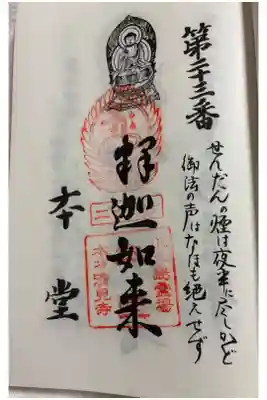 第二十三番
せんだんの煙は夜半に尽しかど
御法の声はなほも絶えせず
釋迦如来
本堂